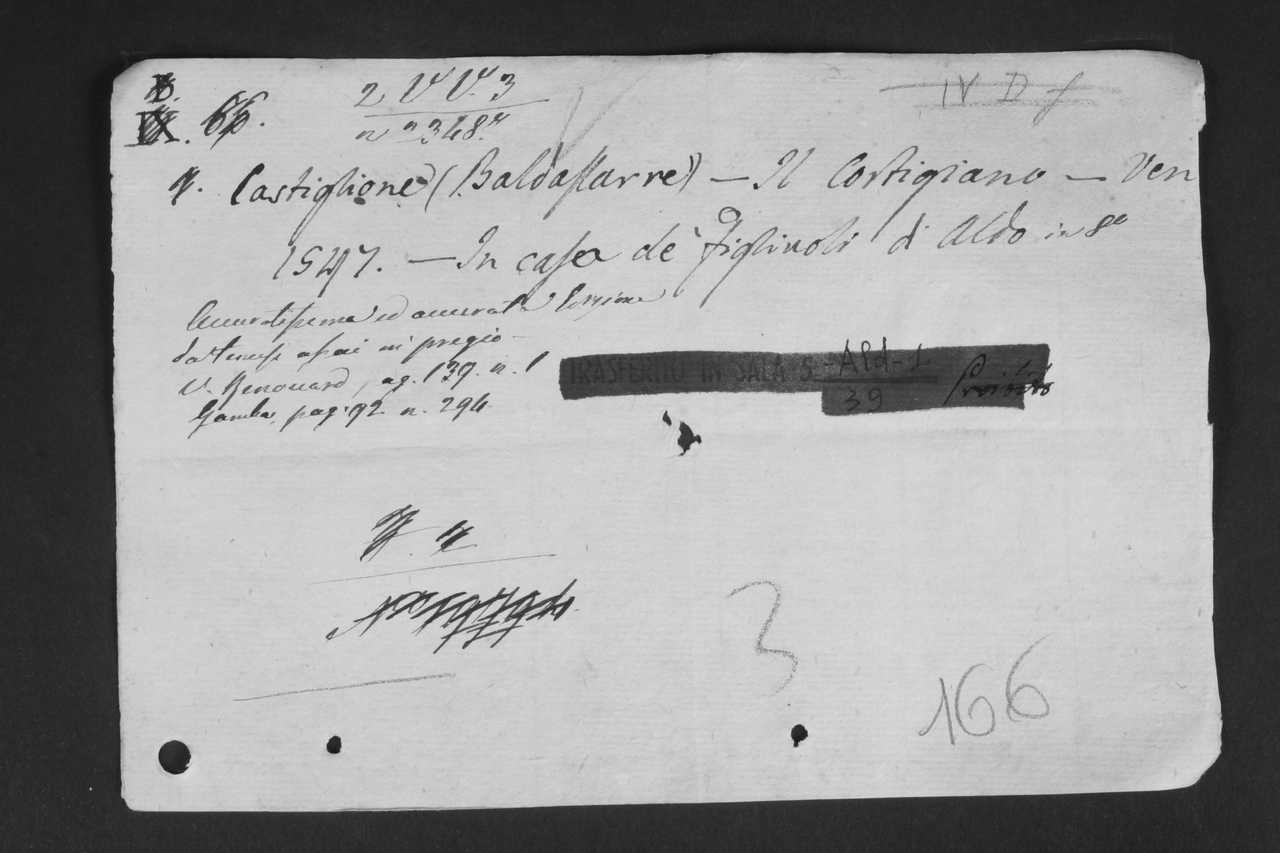 IX. 66.
IV D f
4. Castiglione (Baldassarre) – Il Cortigiano – Ven
1547. – In casa de' figliuoli di Aldo in 8º
ed accurata
da tenersi assai in pregio
V. Renouard, pag. 139. n. 1
Gamba, pag. 92 n. 294
TRASFERITO IN SALA S. Ald-1
39
3
166